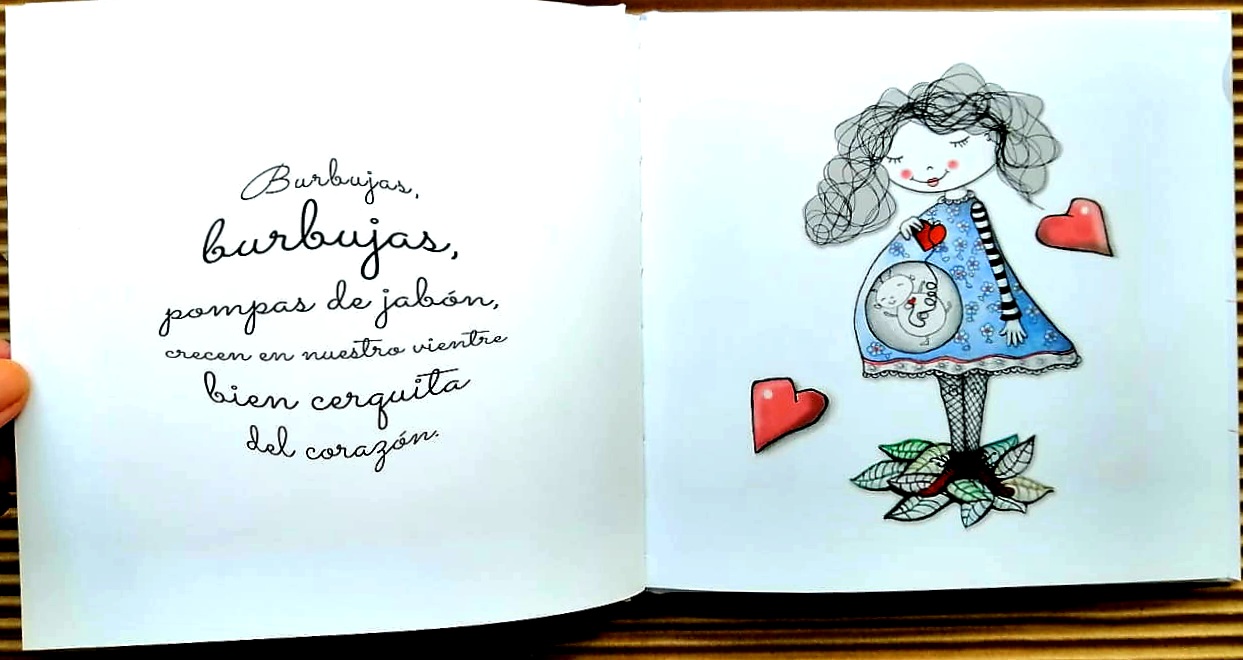 Burbujas,
burbujas,
pompas de jabón,
crecen en nuestro vientre
bien cerquita
del corazón.